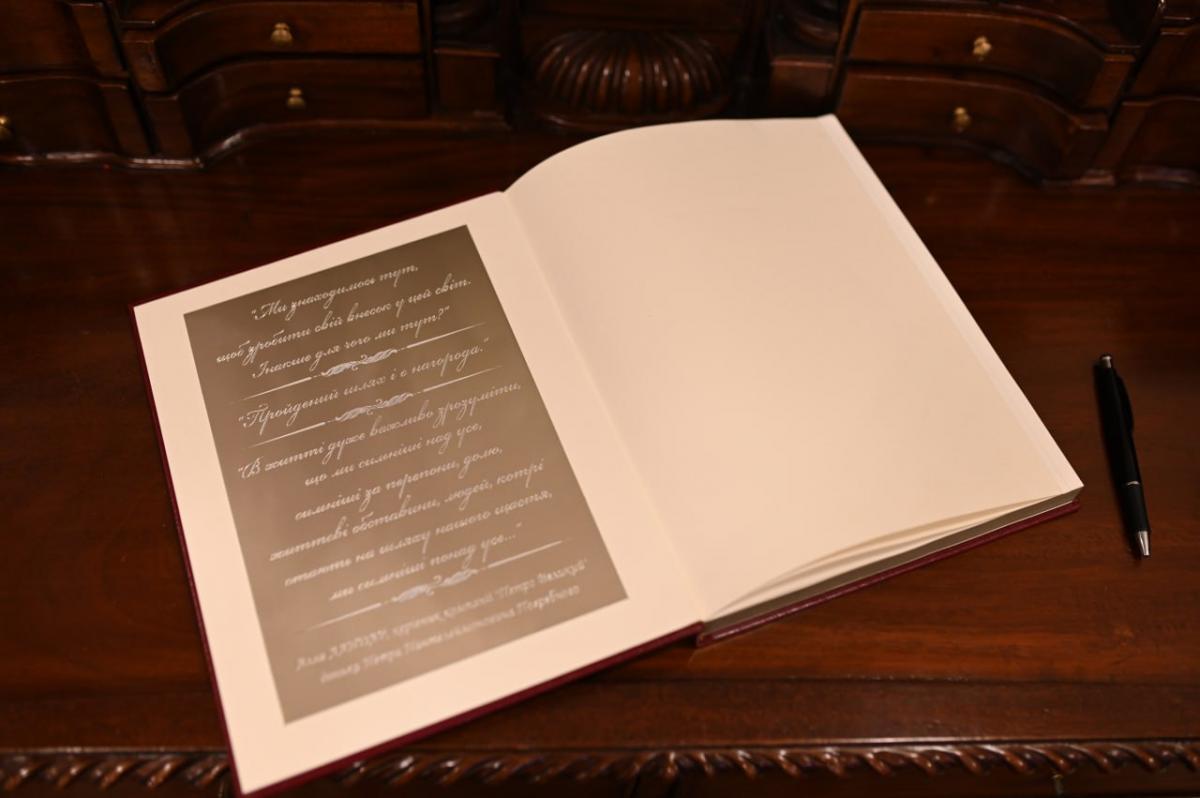 "Ми знаходимось тут,
щоб зробити свій внесок у цей світ.
Інакше для чого ми тут?"
"Пройдений шлях і є нагорода."
"В житті дуже важливо зрозуміти,
що ми сильніші над усе,
сильніші за перепони, долю,
життєві обставини, людей, котрі
стають на шляху нашого щастя,
ми сильніші понад усе..."
Алла керівник компанії "Петро Великий"
донька Петра Пантелеймоновича